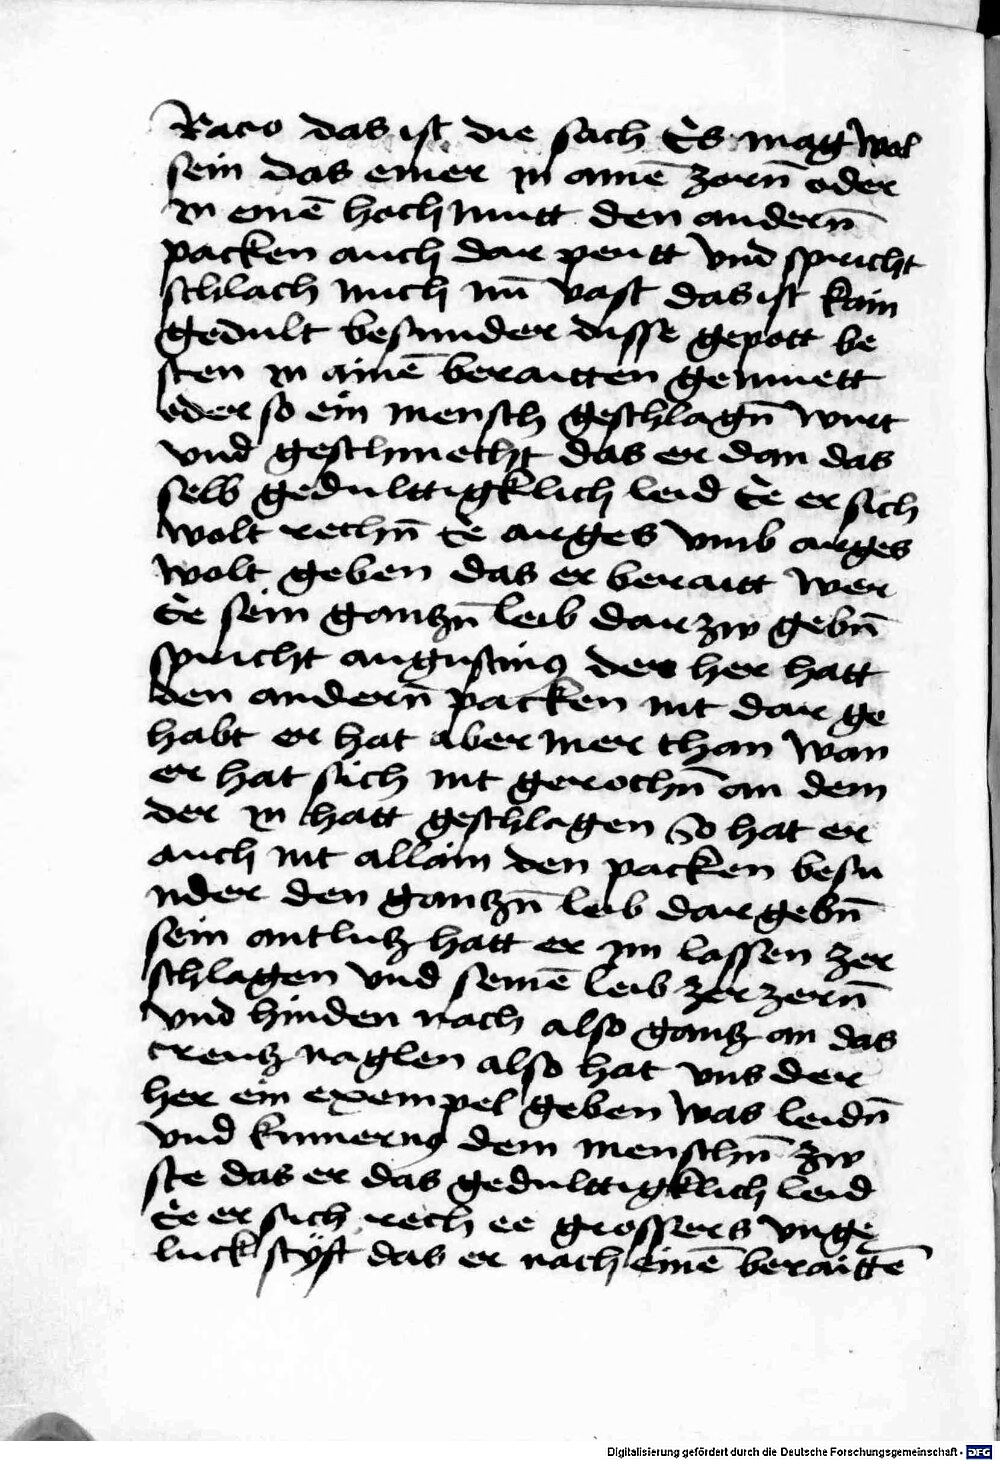 Racio das ist die sach Es mag wol
sein das einer in ainē zorn̄ oder
in einē hochmutt den andern̄
packen auch dar peutt vnd spricht
schlach mich nu̅ vast das ist kain
gedult besunder disse gepott be
sten in ainē beraitten gemuett
oder so ein mensch geschlagn̄ wurt
vnd geschmecht das er dan das
selb gedulttigklich leid Ee er sich
wolt rechn̄ Ee arges vmb arges
wolt geben das er beraitt wer
Ee sein gantzn̄ leib dar zw gebn̄
spricht augustinus der her hatt
den andern̄ packen nit dar ge
habt er hat aber mer than wan
er hat sich nit gerochn̄ an dem
der in hatt geschlagen So hat er
auch nit allain den packen besu
nder den gantzn̄ leib dar gebn̄
sein antlutz hatt er im lassen zer
schlagen vnd seinē leib zerzern̄
vnd hinden nach also gantz an das
creutz naglen also hat vns der
her ein exempel geben was leidn̄
vnd kumernus dem menschn̄ zw
ste das er das gedulttigklich leid
Ee er sich rech ee grossers vnge
luck styft das er nach einē beraittē
Digitalisierung gefördert durch die Deutsche Forschungsgemeinschaft - DFG